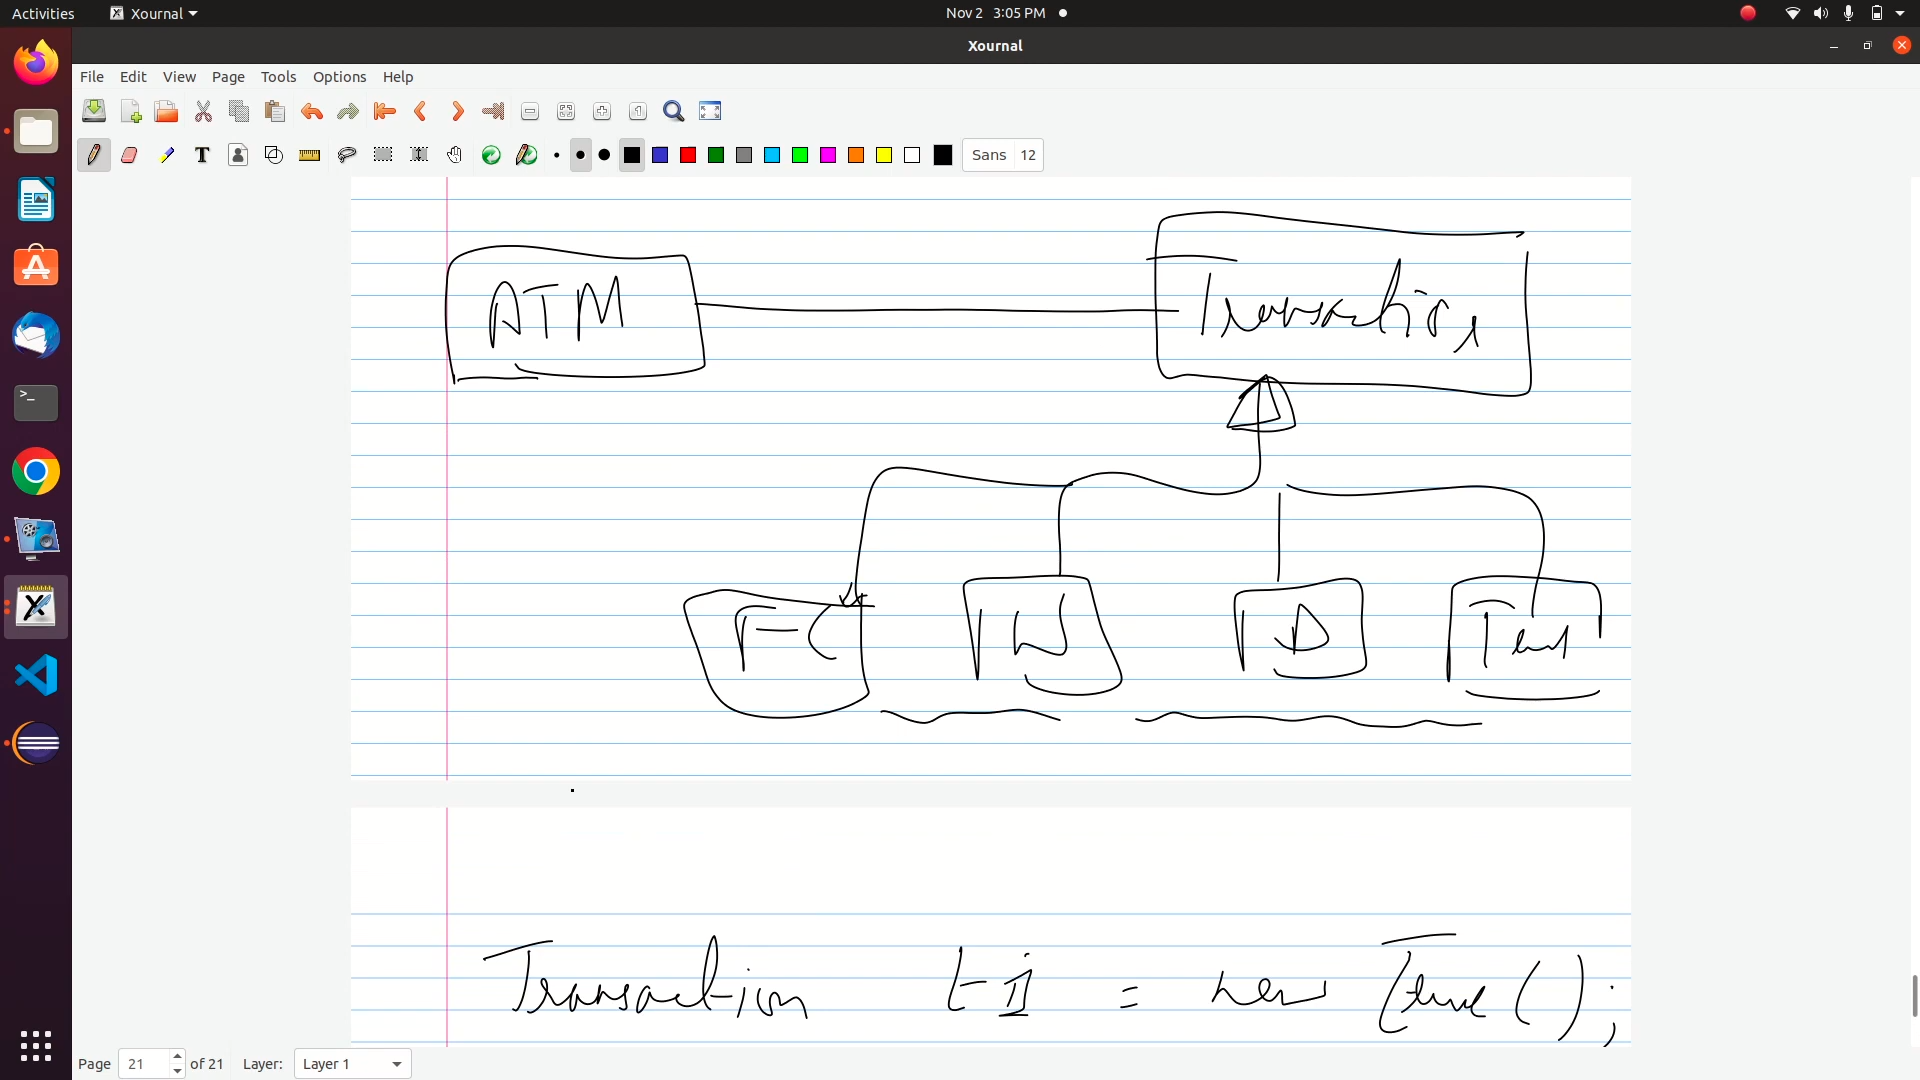 Activities Xournal Nov 2 3:05 PM
Xournal
File Edit View Page Tools Options Help
T Sans 12
ATM Transaction
FC W D
Transaction = new ();
Page 21 of 21 Layer: Layer 1